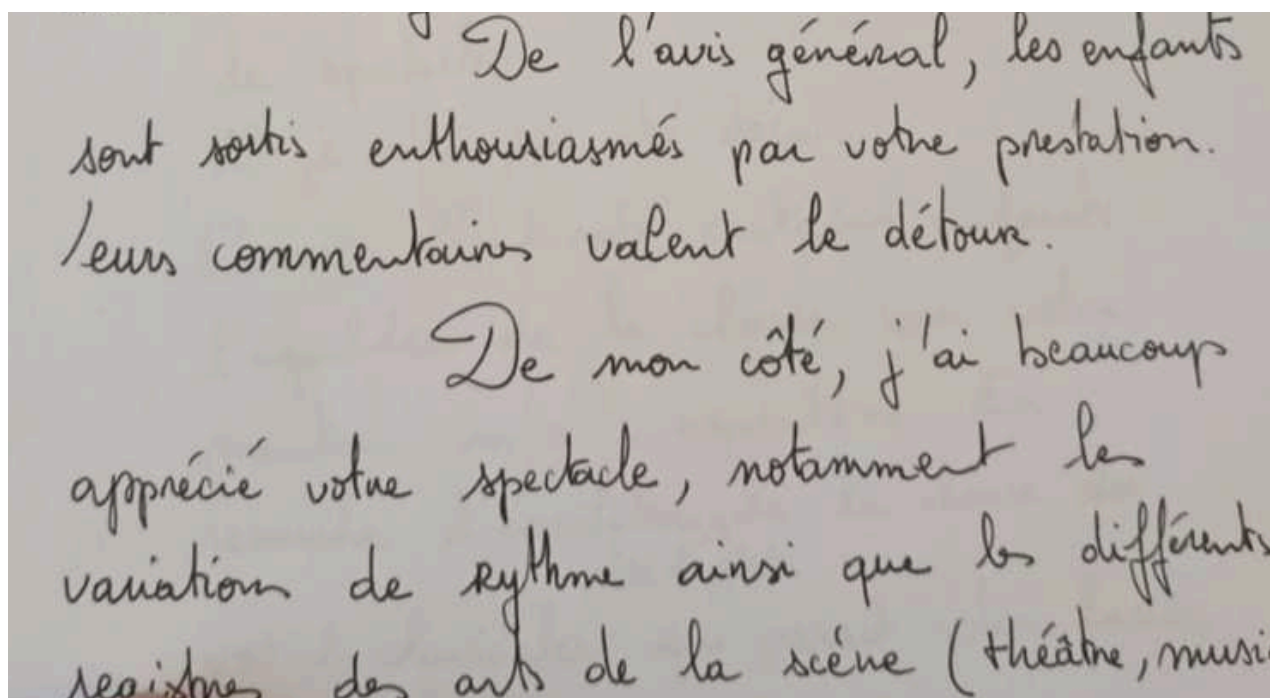 De l'avis général, les enfants
sont sortis enthousiasmés par votre prestation.
leurs commentaires valent le détour.
De mon côté, j'ai beaucoup
apprécié votre spectacle, notamment les
variations de rythme ainsi que les différents
registres des arts de la scène (théâtre, musi